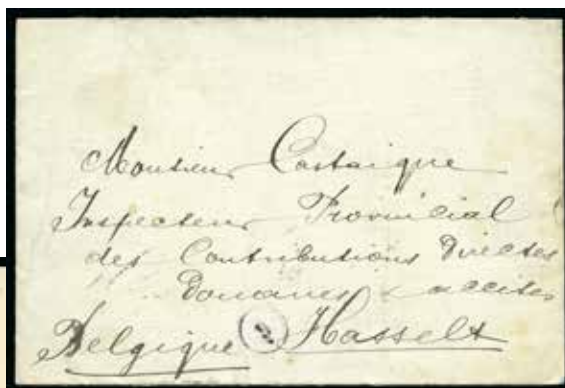 Monsieur Castaigne
Inspecteur Provincial
des Contributions Directes
Douanes & accises
Belgique Hasselt